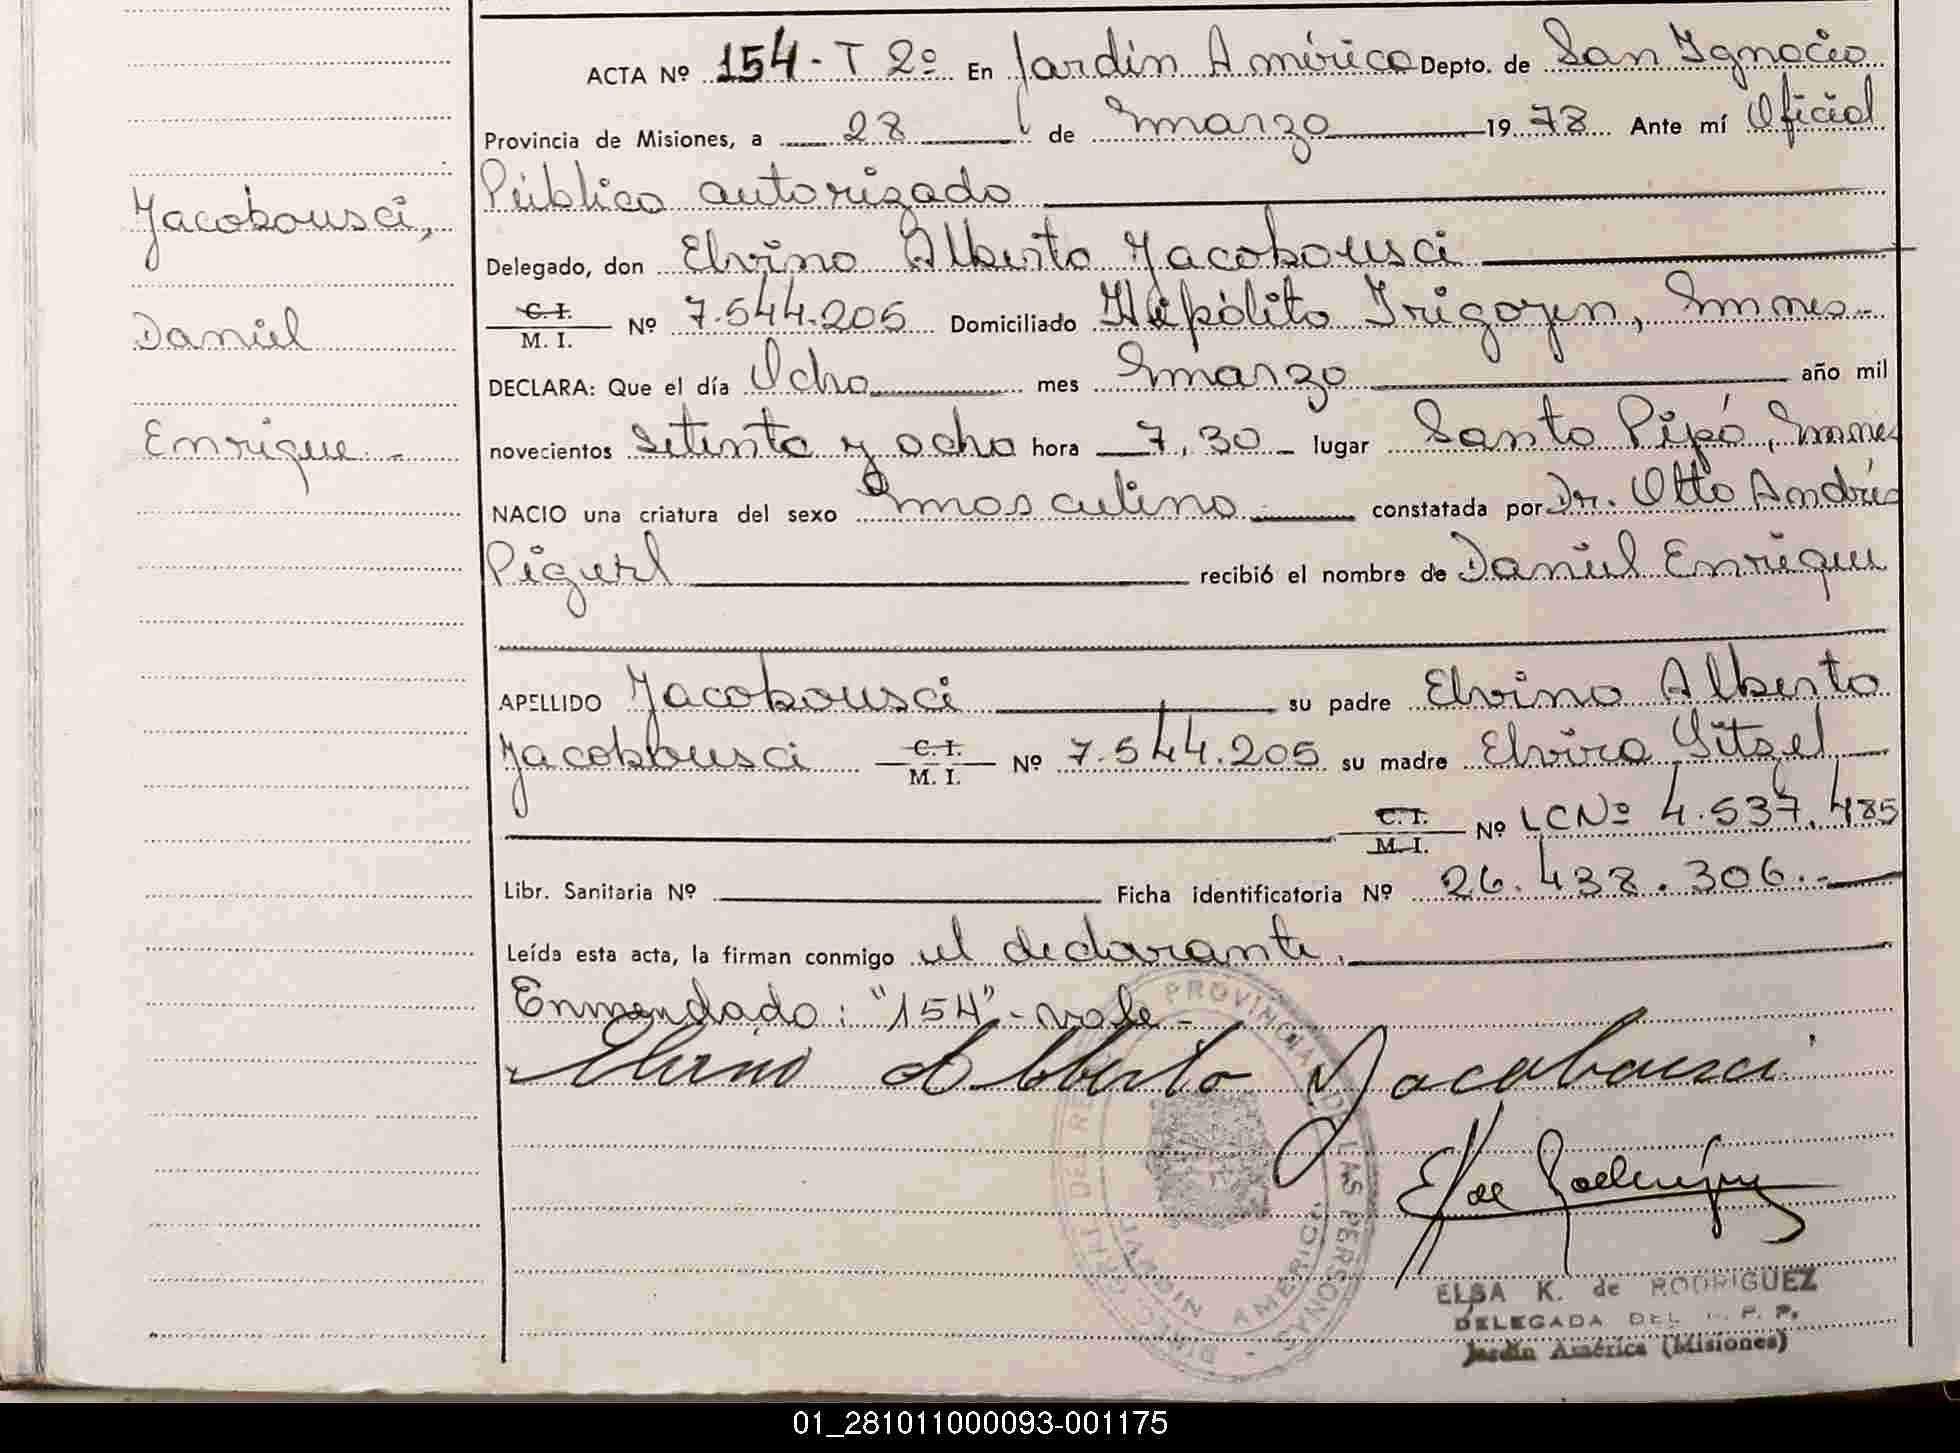 ACTA Nº 154 - T 2º En Jardín América Depto. de San Ignacio
Provincia de Misiones, a 28 de marzo 1978 Ante mí Oficial
Público autorizado
Jacobousci,
Delegado, don Elvino Alberto Jacobousci
C.I. / M. I. Nº 7.544.205 Domiciliado Hipólito Irigoyen, Mnes.-
Daniel
DECLARA: Que el día Ocho mes marzo año mil
novecientos setenta y ocho hora 7,30 lugar Santo Pipó, Mnes
Enrique.-
NACIO una criatura del sexo masculino constatada por Dr. Otto Andrés
Pigerl recibió el nombre de Daniel Enrique
APELLIDO Jacobousci su padre Elvino Alberto
Jacobousci C.I. / M. I. Nº 7.544.205 su madre Elvira Sitzel
C.I. / M. I. Nº LC Nº 4.537.485
Libr. Sanitaria Nº Ficha identificatoria Nº 26.438.306.-
Leída esta acta, la firman conmigo el declarante.
Enmendado: "154"- vale -
Elvino Alberto Jacobousci
ELSA K. de RODRIGUEZ
DELEGADA DEL R. P. P.
Jardín América (Misiones)
PROVINCIAL DE LAS PERSONAS
JARDIN AMERICA
01_281011000093-001175